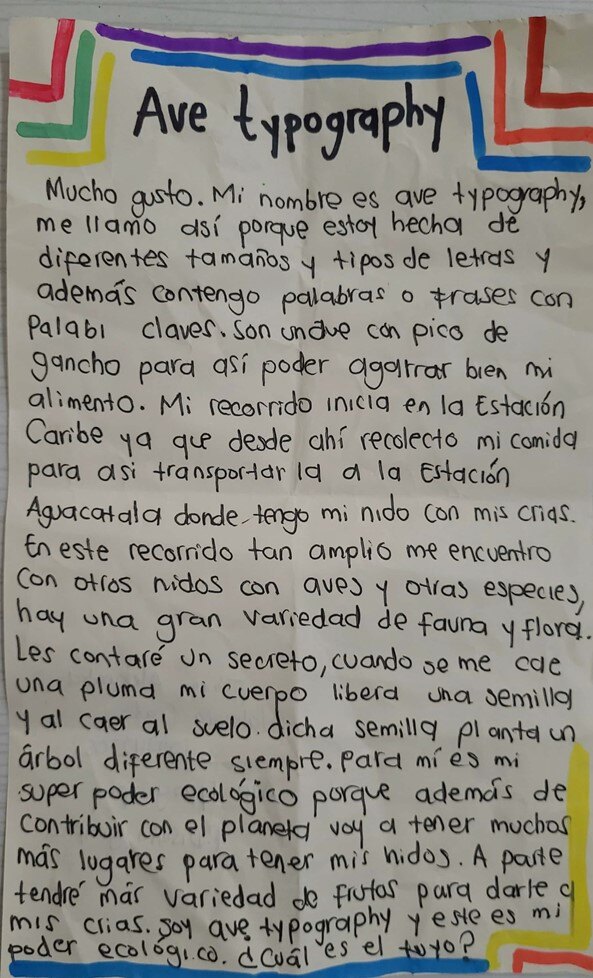 Ave typography
Mucho gusto. Mi nombre es ave typography,
me llamo así porque estoy hecha de
diferentes tamaños y tipos de letras y
además contengo palabras o frases con
Palabi claves. Son undve con pico de
gancho para así poder agarrar bien mi
alimento. Mi recorrido inicia en la Estación
Caribe ya que desde ahí recolecto mi comida
para asi transportar la a la Estación
Aguacatala donde tengo mi nido con mis crias.
En este recorrido tan amplio me encuentro
con otros nidos con aves y otras especies,
hay una gran variedad de fauna y flora.
Les contaré un secreto, cuando se me cae
una pluma mi cuerpo libera una semilla
y al caer al suelo. dicha semilla planta un
árbol diferente siempre. Para mí es mi
super poder ecológico porque además de
contribuir con el planeta voy a tener muchos
más lugares para tener mis nidos. A parte
tendré más variedad de frutos para darle a
mis crias. Soy ave typography y este es mi
poder ecológico. ¿Cuál es el tuyo?